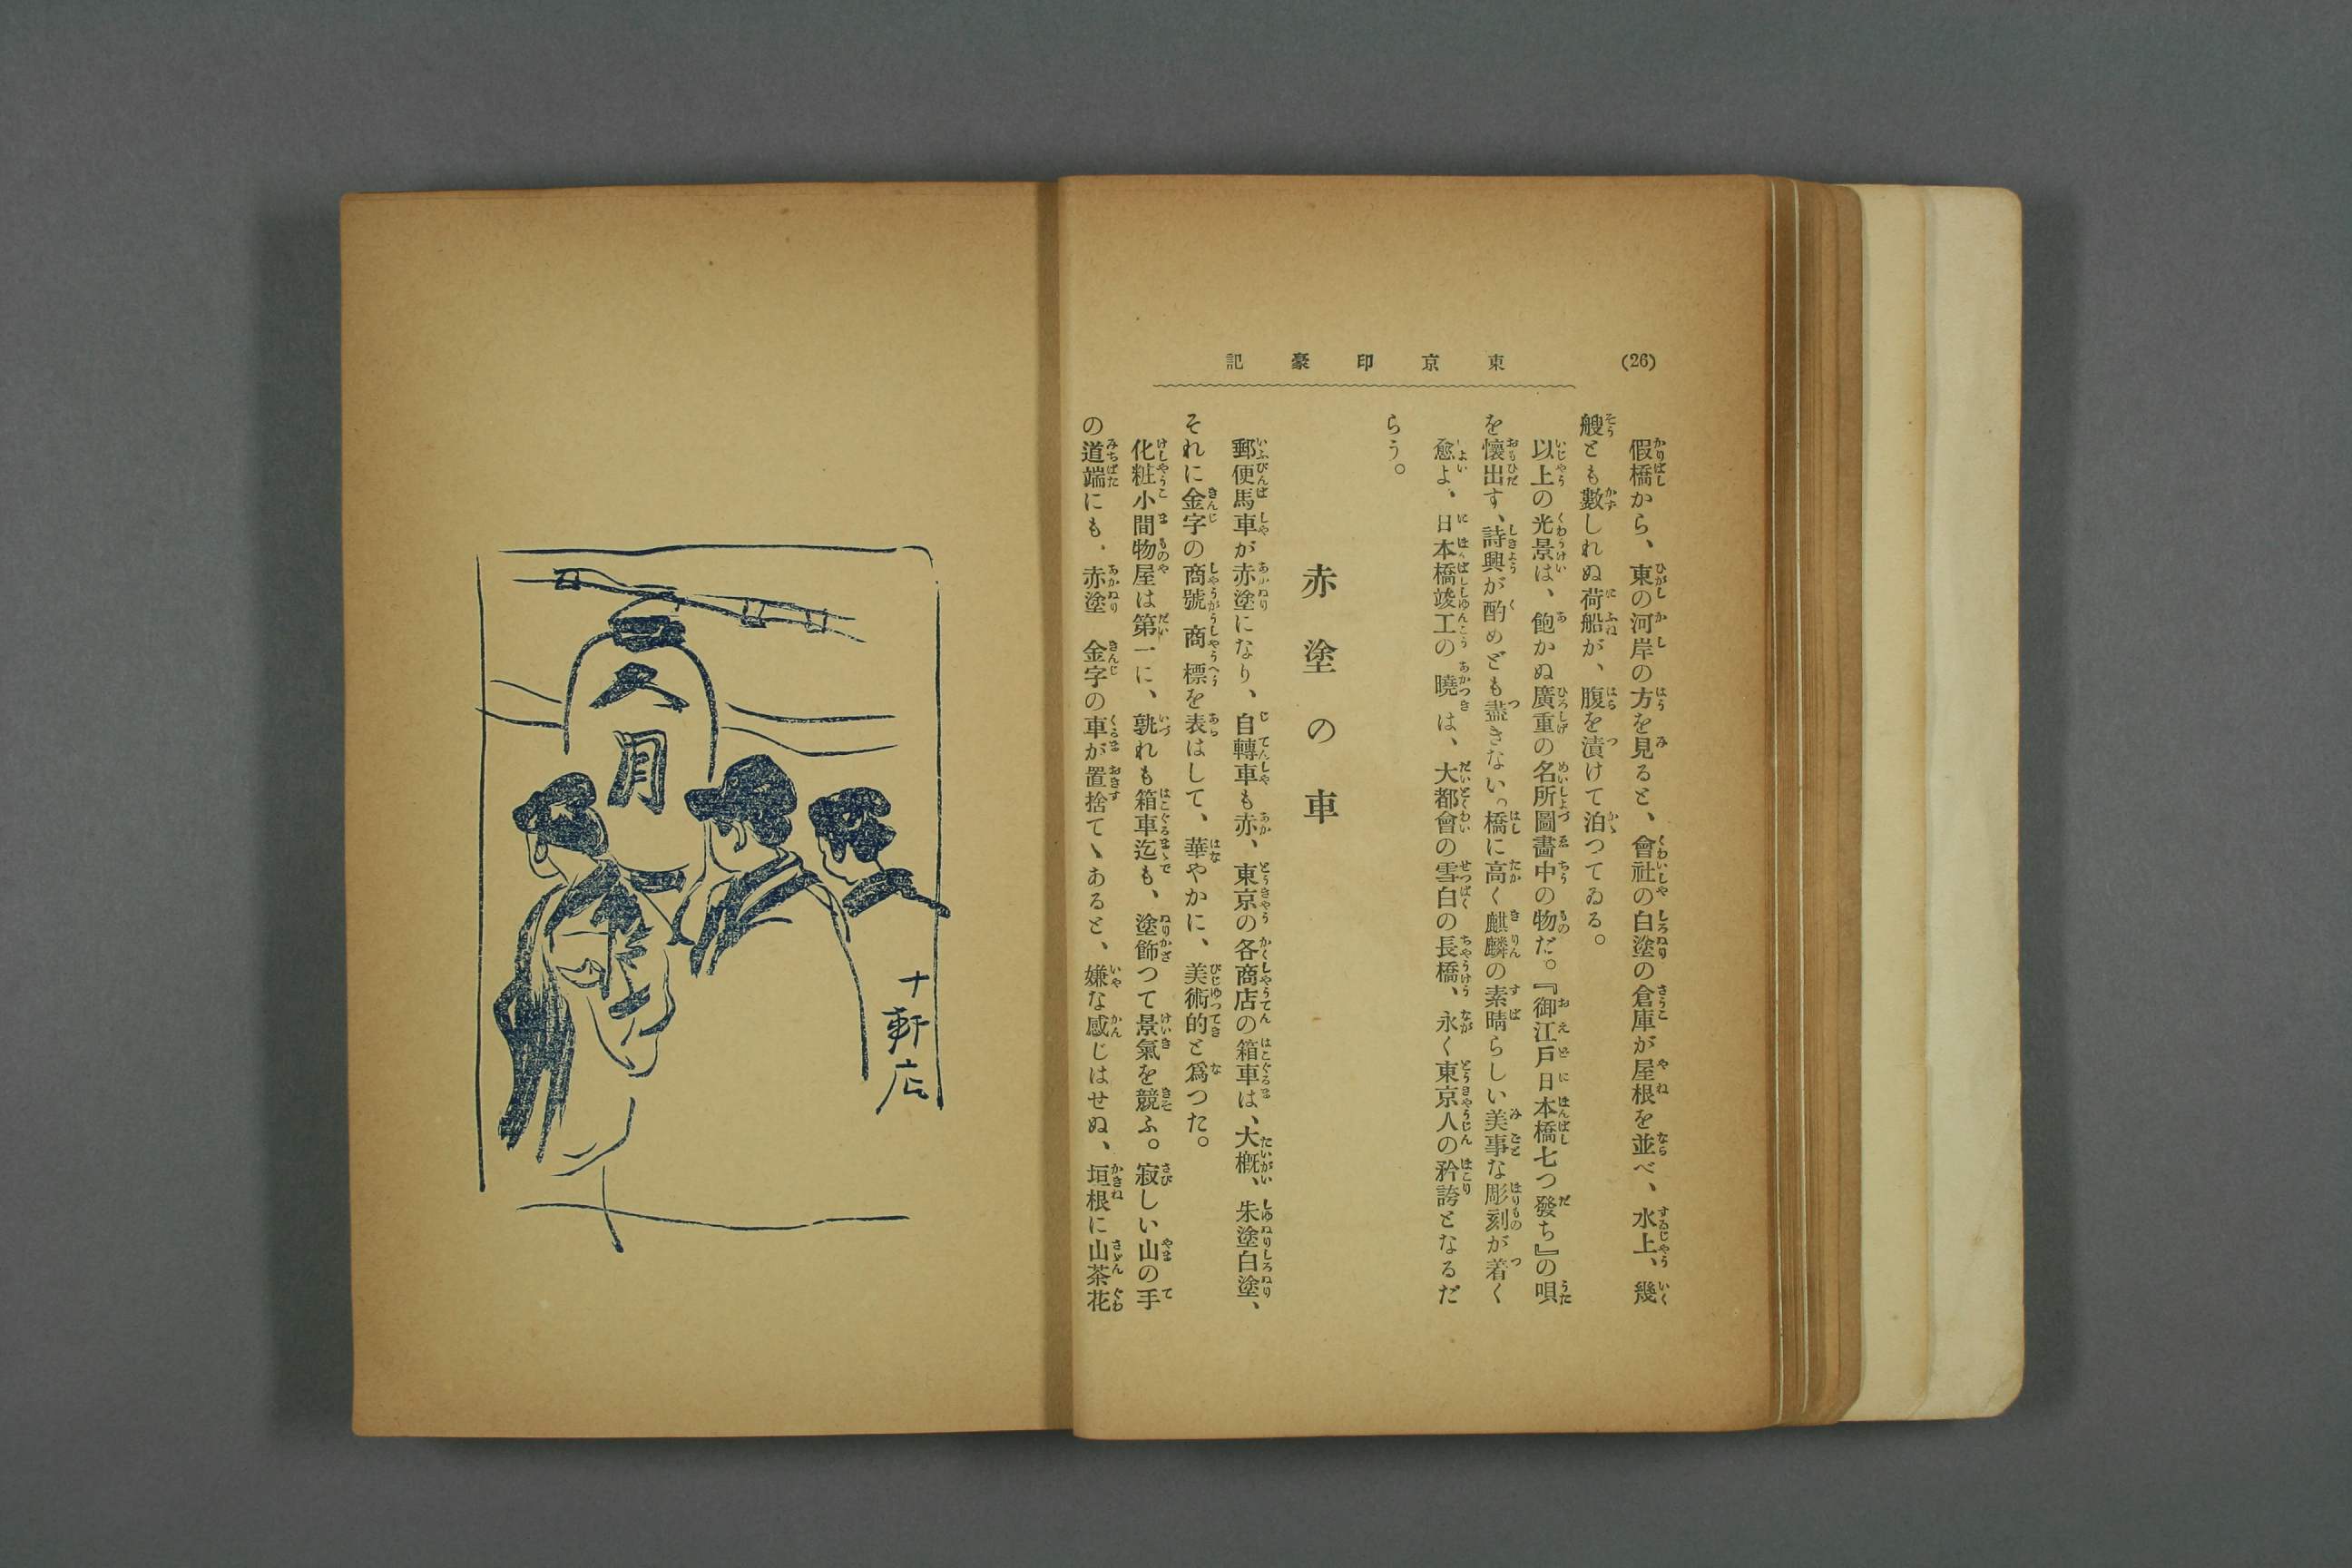 (26)
東京印象記
假橋から、東の河岸の方を見ると、會社の白塗の倉庫が屋根を並べ、水上、幾
艘とも數しれぬ荷船が、腹を漬けて泊つてゐる。
以上の光景は、飽かぬ廣重の名所圖畵中の物だ。『御江戸日本橋七つ發ち』の唄
を懷出す、詩興が酌めども盡きない。橋に高く麒麟の素晴らしい美事な彫刻が着く
愈よ、日本橋竣工の曉は、大都會の雪白の長橋、永く東京人の矜誇となるだ
らう。
赤塗の車
郵便馬車が赤塗になり、自轉車も赤、東京の各商店の箱車は、大概、朱塗白塗、
それに金字の商號商標を表はして、華やかに、美術的と爲つた。
化粧小間物屋は第一に、孰れも箱車迄も、塗飾つて景氣を競ふ。寂しい山の手
の道端にも、赤塗 金字の車が置捨てゝあると、嫌な感じはせぬ、垣根に山茶花
十軒店